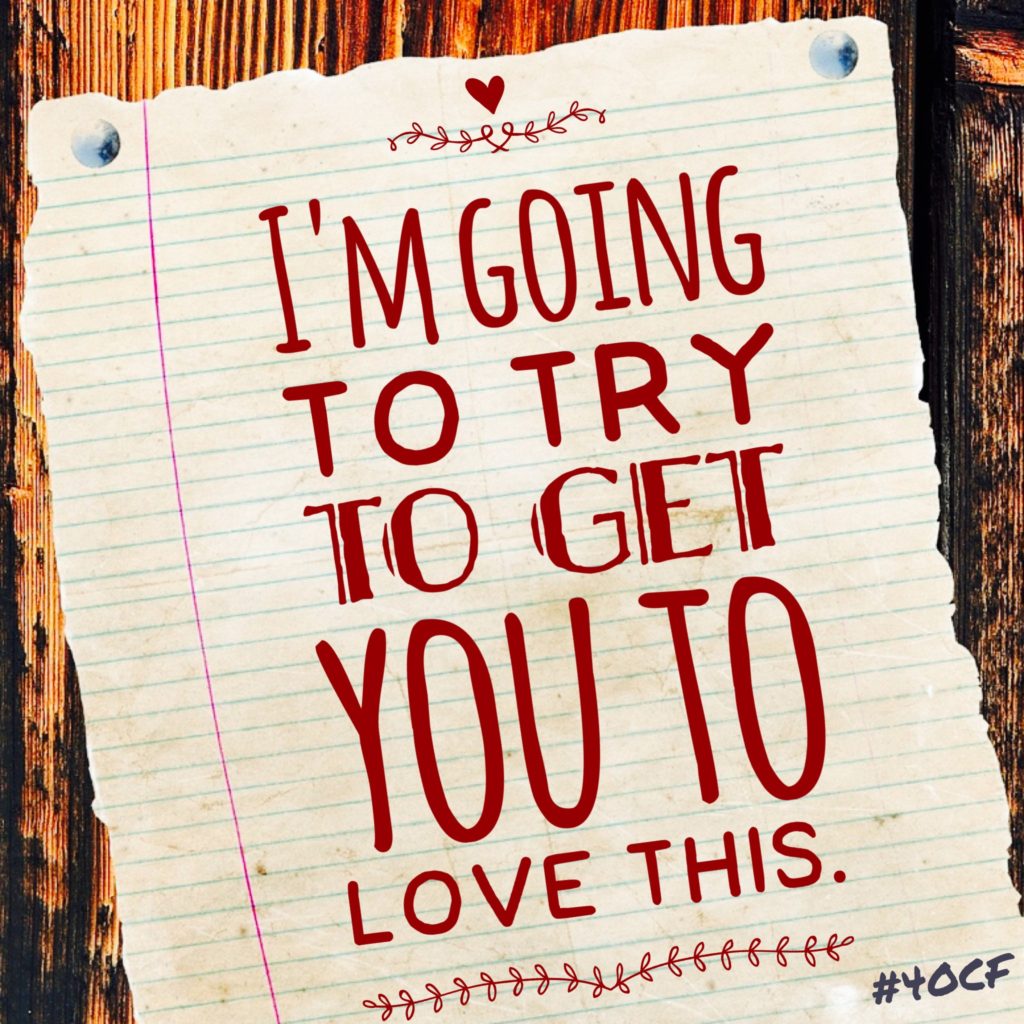 I'M GOING
TO TRY
TO GET
YOU TO
LOVE THIS.
#40CF